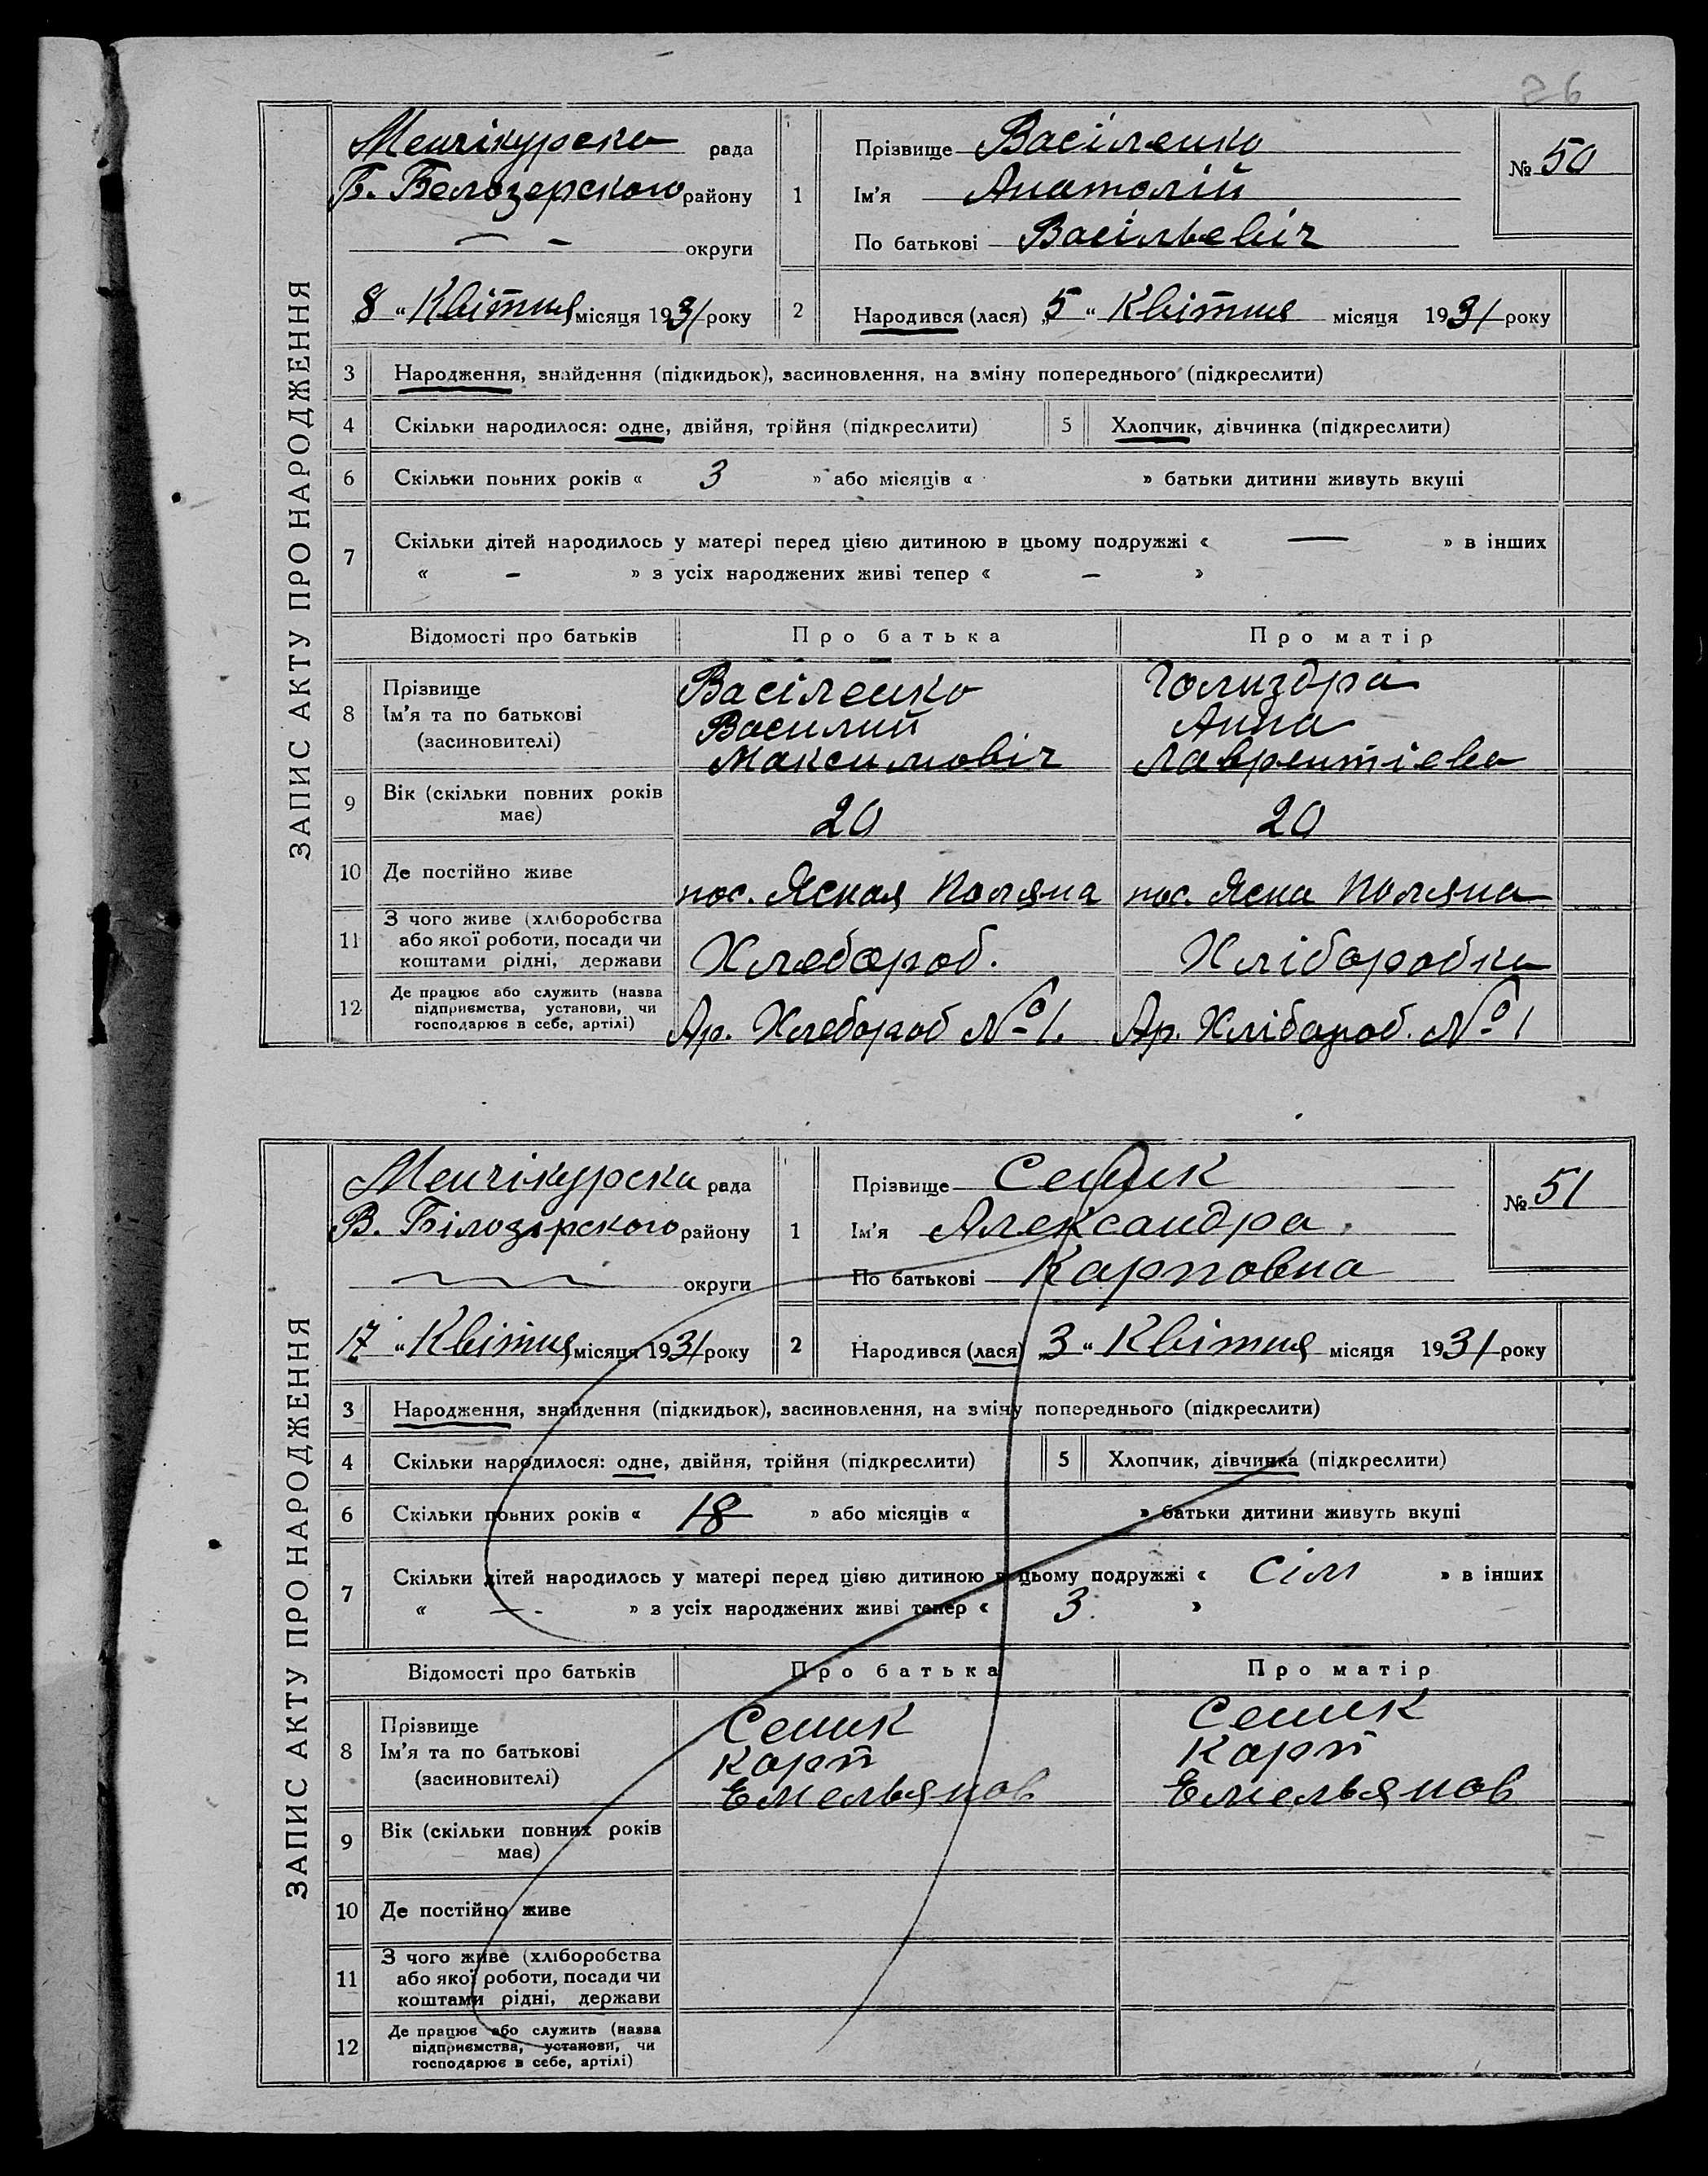 26
ЗАПИС АКТУ ПРО НАРОДЖЕННЯ
Менчікурска рада
Б. Белозерского району
— - округи
8 " Квітня місяця 1931 року
1 Прізвище Васіленко
Ім'я Анатолій
По батькові Васільевіч
№ 50
2 Народився (лася) „5 " Квітня місяця 1931 року
3 Народження, знайдення (підкидьок), засиновлення, на зміну попереднього (підкреслити)
4 Скільки народилося: одне, двійня, трійня (підкреслити) 5 Хлопчик, дівчинка (підкреслити)
6 Скільки повних років « 3 » або місяців « » батьки дитини живуть вкупі
7 Скільки дітей народилось у матері перед цією дитиною в цьому подружжі « — » в інших
« - » з усіх народжених живі тепер « - »
Відомості про батьків Про батька Про матір
8 Прізвище Ім'я та по батькові (засиновителі)
Васіленко Василий Максимовіч
Голиздра Анна Лаврентієва
9 Вік (скільки повних років має) 20 20
10 Де постійно живе пос. Ясная Поляна пос. Ясна Поляна
11 З чого живе (хліборобства або якої роботи, посади чи коштами рідні, держави Хлебороб. Хліборобка
12 Де працює або служить (назва підприємства, установи, чи господарює в себе, артілі) Ар. Хлебороб № 1. Ар. Хлібороб. № 1
ЗАПИС АКТУ ПРО НАРОДЖЕННЯ
Менчікурска рада
В. Білозерского району
округи
17 " Квітня місяця 1931 року
1 Прізвище Семик
Ім'я Александра
По батькові Карповна
№ 51
2 Народився (лася) „3 " Квітня місяця 1931 року
3 Народження, знайдення (підкидьок), засиновлення, на зміну попереднього (підкреслити)
4 Скільки народилося: одне, двійня, трійня (підкреслити) 5 Хлопчик, дівчинка (підкреслити)
6 Скільки повних років « 18 » або місяців « » батьки дитини живуть вкупі
7 Скільки дітей народилось у матері перед цією дитиною в цьому подружжі « сім » в інших
« — . » з усіх народжених живі тепер « 3. »
Відомості про батьків Про батька Про матір
8 Прізвище Ім'я та по батькові (засиновителі)
Семик Карп Емельянов
Семик Карп Емельянов
9 Вік (скільки повних років має)
10 Де постійно живе
11 З чого живе (хліборобства або якої роботи, посади чи коштами рідні, держави
12 Де працює або служить (назва підприємства, установи, чи господарює в себе, артілі)